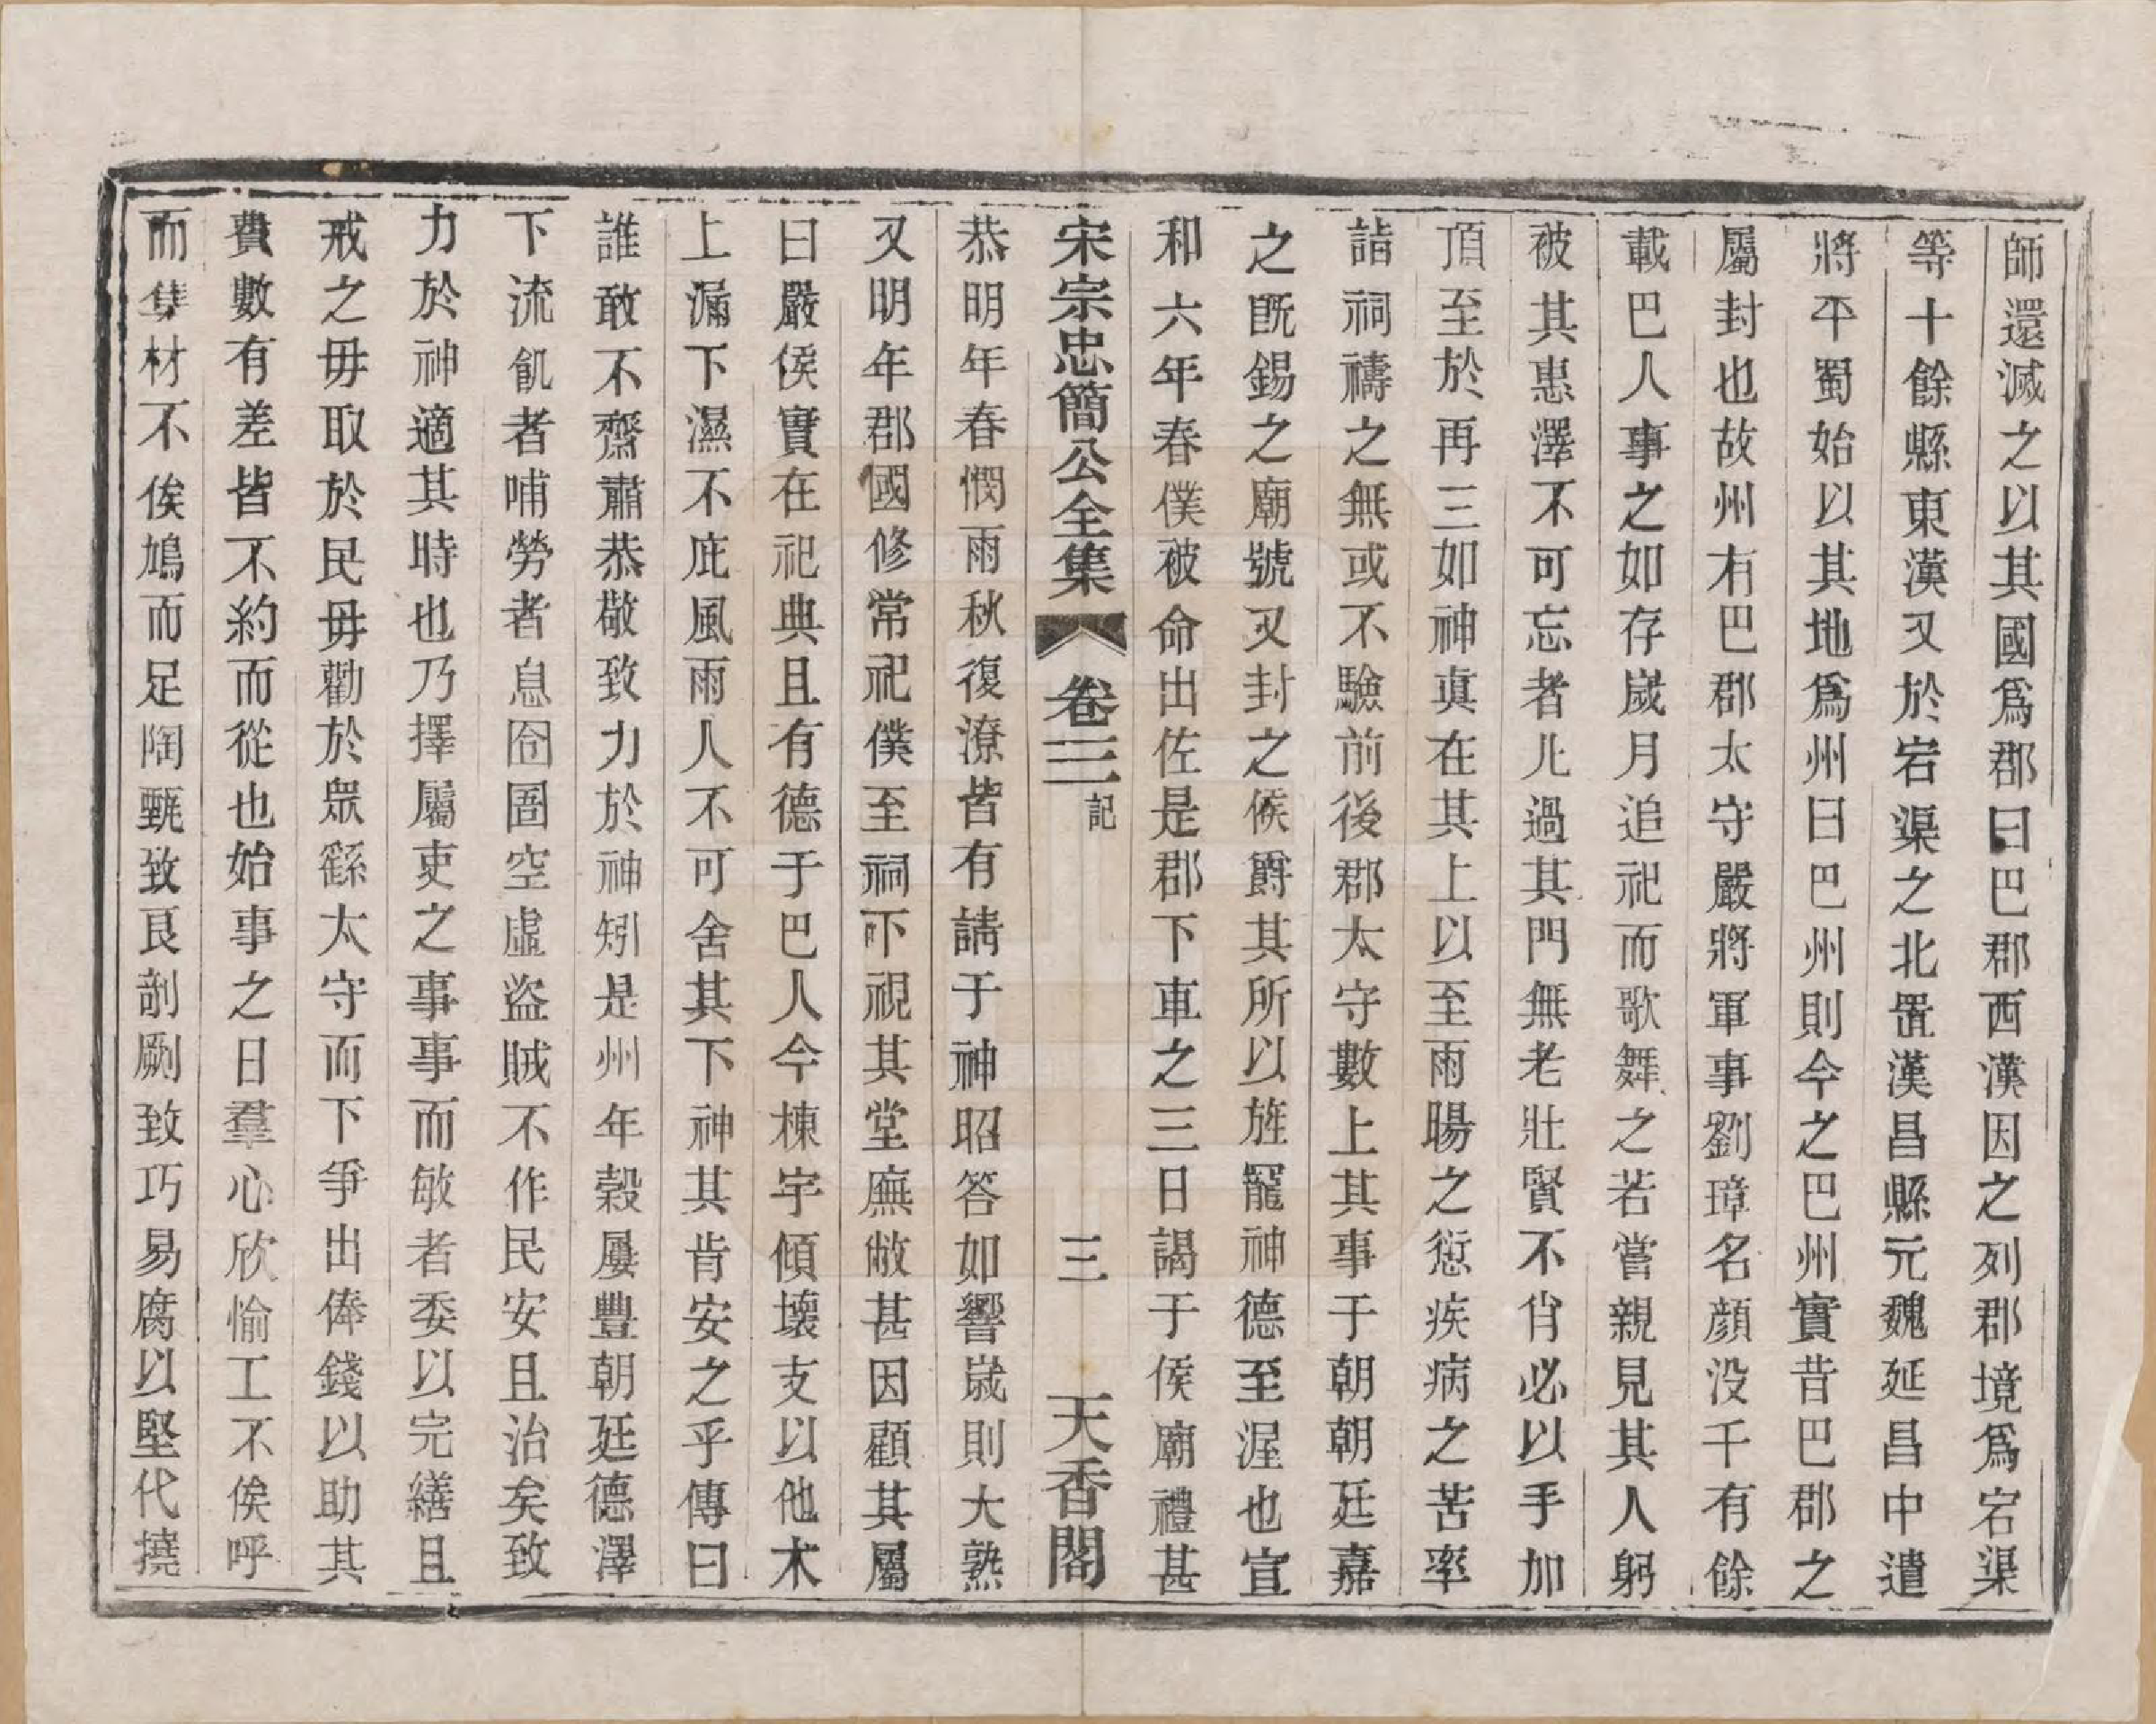 師還滅之以其國爲郡曰巴郡西漢因之列郡境爲宕渠
等十餘縣東漢又於宕渠之北置漢昌縣元魏延昌中遣
將平蜀始以其地爲州曰巴州則今之巴州實昔巴郡之
屬封也故州有巴郡太守嚴將軍事劉璋名顔没千有餘
載巴人事之如存歲月追祀而歌舞之若嘗親見其人躬
被其惠澤不可忘者凡過其門無老壯賢不肖必以手加
頂至於再三如神真在其上以至雨暘之愆疾病之苦率
詣祠禱之無或不驗前後郡太守數上其事于朝朝廷嘉
之旣錫之廟號又封之侯爵其所以旌寵神德至渥也宣
和六年春僕被命出佐是郡下車之三日謁于侯廟禮甚
宋宗忠簡公全集 卷三 記 三 天香閣
恭明年春憫雨秋復潦皆有請于神昭答如響歲則大熟
又明年郡國修常祀僕至祠下視其堂廡敝甚因顧其屬
曰嚴侯實在祀典且有德于巴人今棟宇傾壞支以他木
上漏下濕不庇風雨人不可舍其下神其肯安之乎傳曰
誰敢不齋肅恭敬致力於神矧是州年穀屢豐朝廷德澤
下流飢者哺勞者息囹圄空虛盜賊不作民安且治矣致
力於神適其時也乃擇屬吏之事事而敏者委以完繕且
戒之毋取於民毋勸於眾繇太守而下爭出俸錢以助其
費數有差皆不約而從也始事之日羣心欣愉工不俟呼
而集材不俟鳩而足陶甄致良剞劂致巧易腐以堅代撓